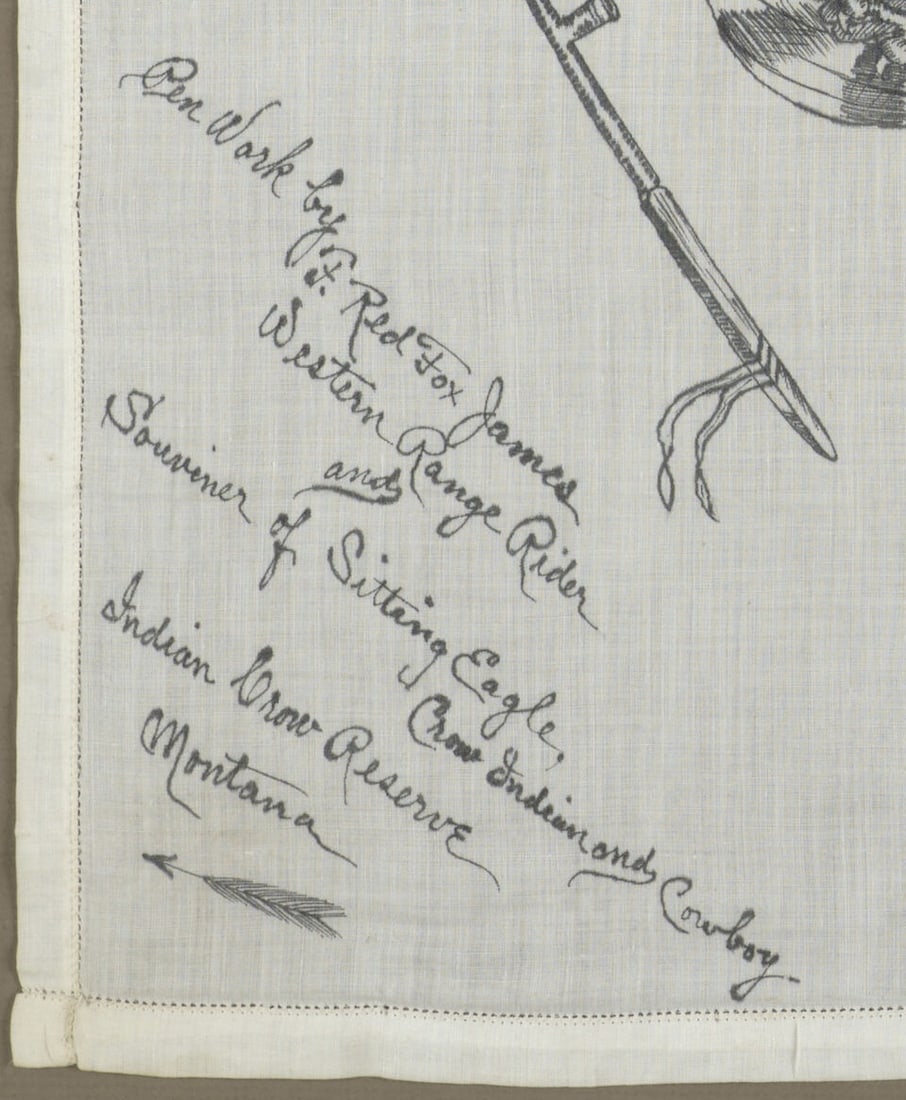 Pen Work by F. Red Fox James
Western Range Rider
and
Souviner of Sitting Eagle,
Crow Indian and Cowboy
Indian Crow Reserve
Montana